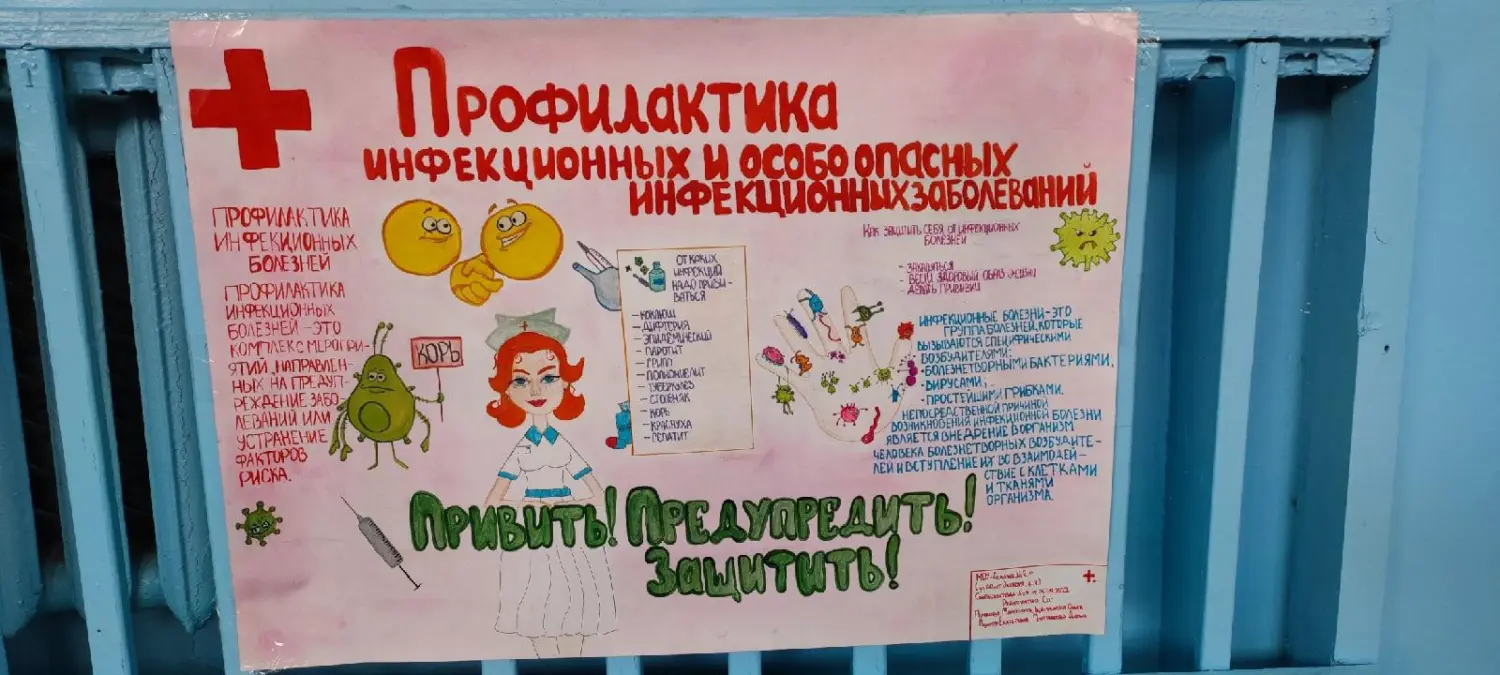 Профилактика
инфекционных и особо опасных
инфекционных заболеваний
ПРОФИЛАКТИКА
ИНФЕКЦИОННЫХ
БОЛЕЗНЕЙ
ПРОФИЛАКТИКА
ИНФЕКЦИОННЫХ
БОЛЕЗНЕЙ – ЭТО
КОМПЛЕКС МЕРОПРИ-
ЯТИЙ, НАПРАВЛЕН-
НЫХ НА ПРЕДУП-
РЕЖДЕНИЕ ЗАБО-
ЛЕВАНИЙ ИЛИ
УСТРАНЕНИЕ
ФАКТОРОВ
РИСКА.
КОРЬ
ОТ КАКИХ
ИНФЕКЦИЙ
НАДО ПРИВИ-
ВАТЬСЯ
– КОКЛЮШ
– ДИФТЕРИЯ
– ЭПИДЕМИЧЕСКИЙ
– ПАРОТИТ
– ГРИПП
– ПОЛИОМИЕЛИТ
– ТУБЕРКУЛЕЗ
– СТОЛБНЯК
– КОРЬ
– КРАСНУХА
– ГЕПАТИТ
КАК ЗАЩИТИТЬ СЕБЯ ОТ ИНФЕКЦИОННЫХ
БОЛЕЗНЕЙ
– ЗАКАЛЯТЬСЯ
– ВЕСТИ ЗДОРОВЫЙ ОБРАЗ ЖИЗНИ
– ДЕЛАТЬ ПРИВИВКИ
ИНФЕКЦИОННЫЕ БОЛЕЗНИ – ЭТО
ГРУППА БОЛЕЗНЕЙ, КОТОРЫЕ
ВЫЗЫВАЮТСЯ СПЕЦИФИЧЕСКИМИ
ВОЗБУДИТЕЛЯМИ:
· БОЛЕЗНЕТВОРНЫМИ БАКТЕРИЯМИ,
· ВИРУСАМИ,
· ПРОСТЕЙШИМИ ГРИБКАМИ.
НЕПОСРЕДСТВЕННОЙ ПРИЧИНОЙ
ВОЗНИКНОВЕНИЯ ИНФЕКЦИОННОЙ БОЛЕЗНИ
ЯВЛЯЕТСЯ ВНЕДРЕНИЕ В ОРГАНИЗМ
ЧЕЛОВЕКА БОЛЕЗНЕТВОРНЫХ ВОЗБУДИТЕ-
ЛЕЙ И ВСТУПЛЕНИЕ ИХ ВО ВЗАИМОДЕЙ-
СТВИЕ С КЛЕТКАМИ
И ТКАНЯМИ
ОРГАНИЗМА.
Привить! Предупредить!
Защитить!